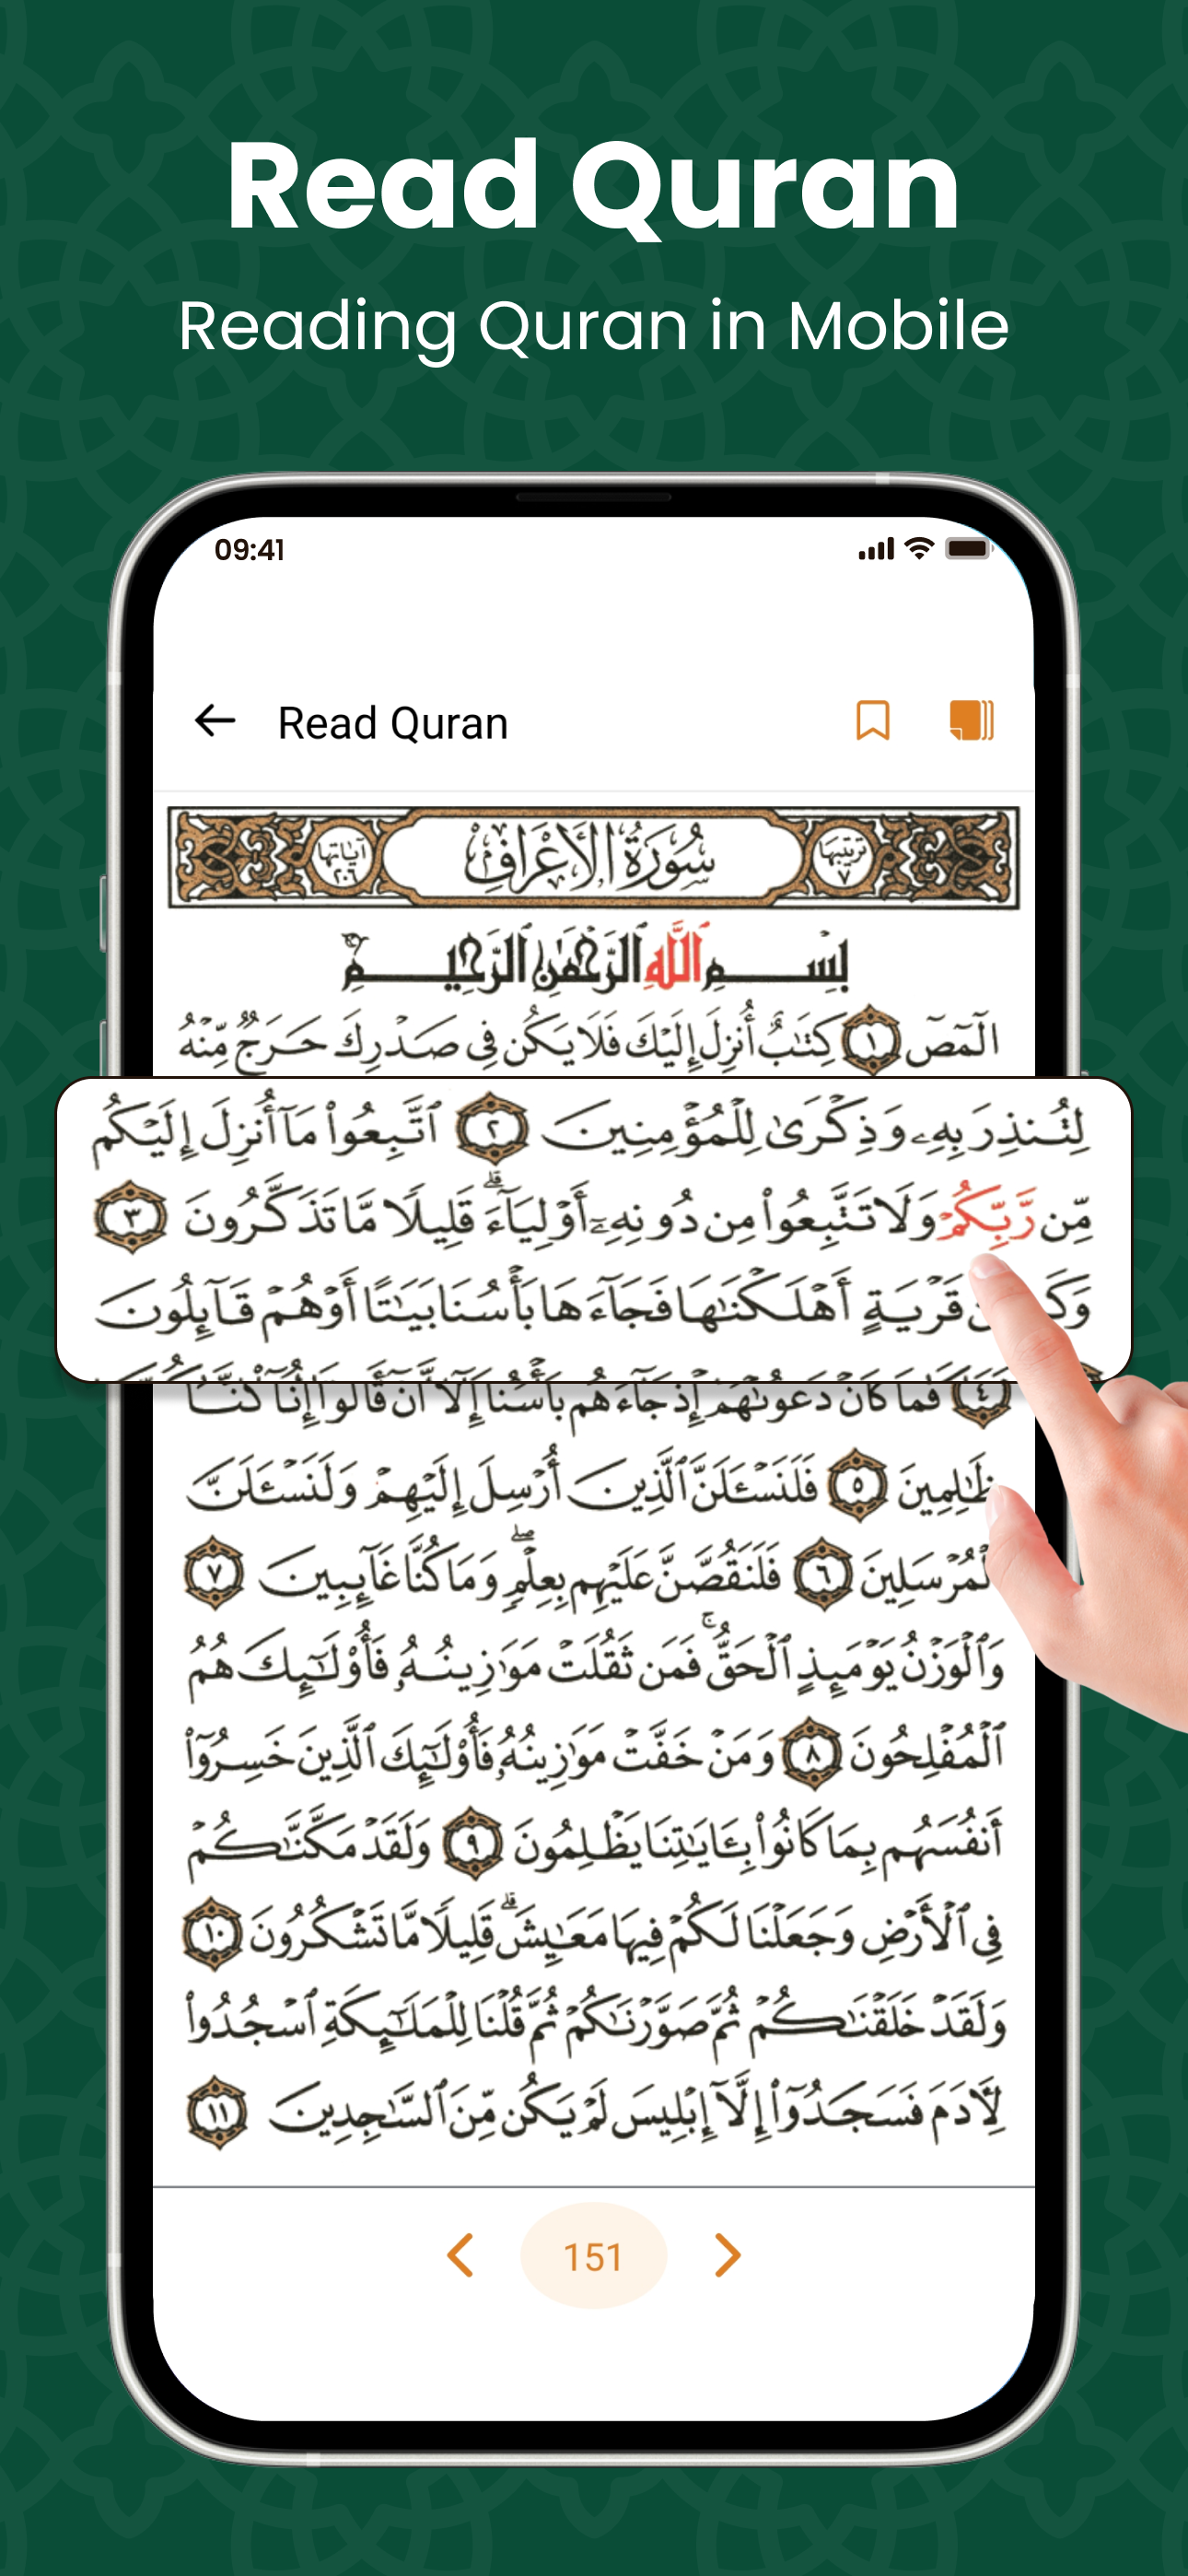 Read Quran
Reading Quran in Mobile
09:41
Read Quran
ترتيبها ٧
سُورَةُ الأَعْرَافِ
آياتها ٢٠٦
بِسْمِ ٱللَّهِ ٱلرَّحْمَٰنِ ٱلرَّحِيمِ
الٓمٓصٓ ١ كِتَٰبٌ أُنزِلَ إِلَيْكَ فَلَا يَكُن فِى صَدْرِكَ حَرَجٌ مِّنْهُ
لِتُنذِرَ بِهِۦ وَذِكْرَىٰ لِلْمُؤْمِنِينَ ٢ ٱتَّبِعُوا۟ مَآ أُنزِلَ إِلَيْكُم
مِّن رَّبِّكُمْ وَلَا تَتَّبِعُوا۟ مِن دُونِهِۦٓ أَوْلِيَآءَ ۗ قَلِيلًا مَّا تَذَكَّرُونَ ٣
قَرْيَةٍ أَهْلَكْنَٰهَا فَجَآءَهَا بَأْسُنَا بَيَٰتًا أَوْ هُمْ قَآئِلُونَ
٤ فَمَا كَانَ دَعْوَىٰهُمْ إِذْ جَآءَهُم بَأْسُنَآ إِلَّآ أَن قَالُوٓا۟ إِنَّا كُنَّا
ظَٰلِمِينَ ٥ فَلَنَسْـَٔلَنَّ ٱلَّذِينَ أُرْسِلَ إِلَيْهِمْ وَلَنَسْـَٔلَنَّ
ٱلْمُرْسَلِينَ ٦ فَلَنَقُصَّنَّ عَلَيْهِم بِعِلْمٍ ۖ وَمَا كُنَّا غَآئِبِينَ ٧
وَٱلْوَزْنُ يَوْمَئِذٍ ٱلْحَقُّ ۚ فَمَن ثَقُلَتْ مَوَٰزِينُهُۥ فَأُو۟لَٰٓئِكَ هُمُ
ٱلْمُفْلِحُونَ ٨ وَمَنْ خَفَّتْ مَوَٰزِينُهُۥ فَأُو۟لَٰٓئِكَ ٱلَّذِينَ خَسِرُوٓا۟
أَنفُسَهُم بِمَا كَانُوا۟ بِـَٔايَٰتِنَا يَظْلِمُونَ ٩ وَلَقَدْ مَكَّنَّٰكُمْ
فِى ٱلْأَرْضِ وَجَعَلْنَا لَكُمْ فِيهَا مَعَٰيِشَ ۗ قَلِيلًا مَّا تَشْكُرُونَ ١٠
وَلَقَدْ خَلَقْنَٰكُمْ ثُمَّ صَوَّرْنَٰكُمْ ثُمَّ قُلْنَا لِلْمَلَٰٓئِكَةِ ٱسْجُدُوا۟
لِـَٔادَمَ فَسَجَدُوٓا۟ إِلَّآ إِبْلِيسَ لَمْ يَكُن مِّنَ ٱلسَّٰجِدِينَ ١١
151